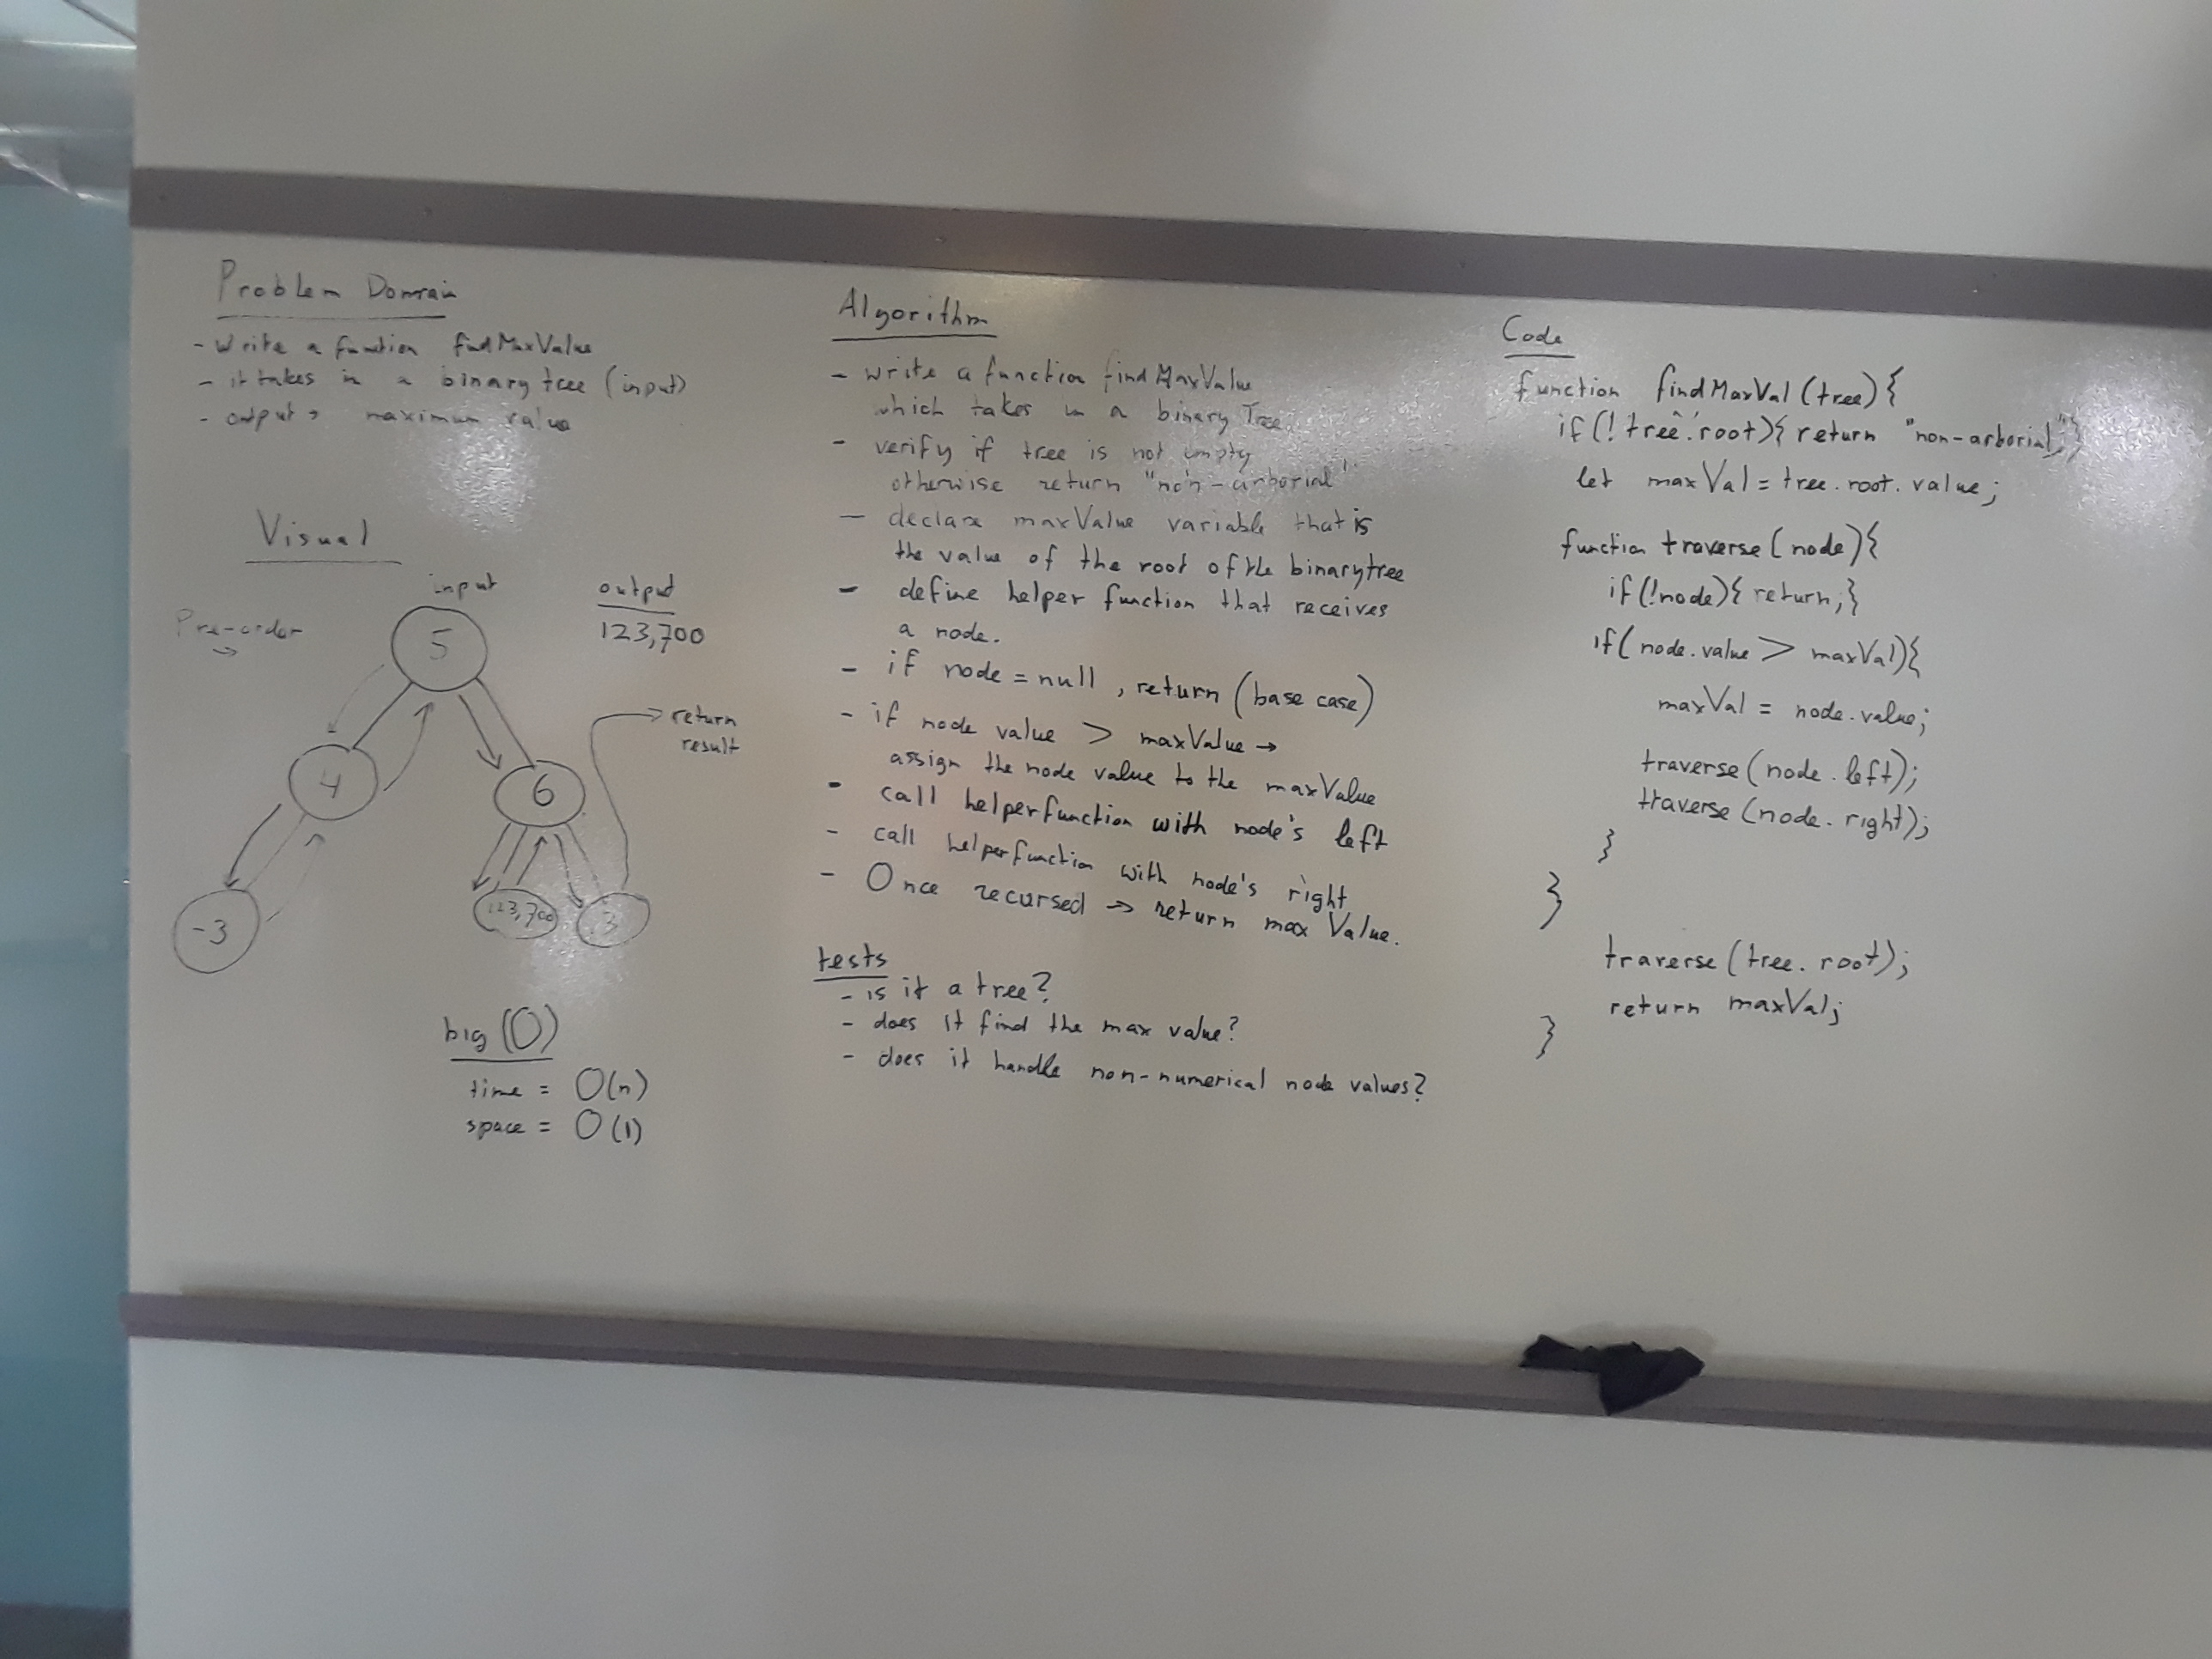 Problem Domain
- Write a function findMaxValue
- it takes in a binary tree (input)
- output → maximum value
Visual
input
output
123,700
Pre-order
→
5
return
result
4
6
-3
123,700
3
big (O)
time = O(n)
space = O(1)
Algorithm
- write a function findMaxValue
which takes in a binary Tree
- verify if tree is not empty
otherwise return "non-arborial"
- declare maxValue variable that is
the value of the root of the binarytree
- define helper function that receives
a node.
- if node = null, return (base case)
- if node value > maxValue →
assign the node value to the maxValue
- call helperfunction with node's left
- call helperfunction with node's right
- Once recursed → return max Value.
tests
- is it a tree?
- does it find the max value?
- does it handle non-numerical node values?
Code
function findMaxVal(tree){
if(!tree.root){ return "non-arborial";}
let maxVal = tree.root.value;
function traverse(node){
if(!node){ return;}
if(node.value > maxVal){
maxVal = node.value;
traverse(node.left);
traverse(node.right);
}
}
traverse(tree.root);
return maxVal;
}